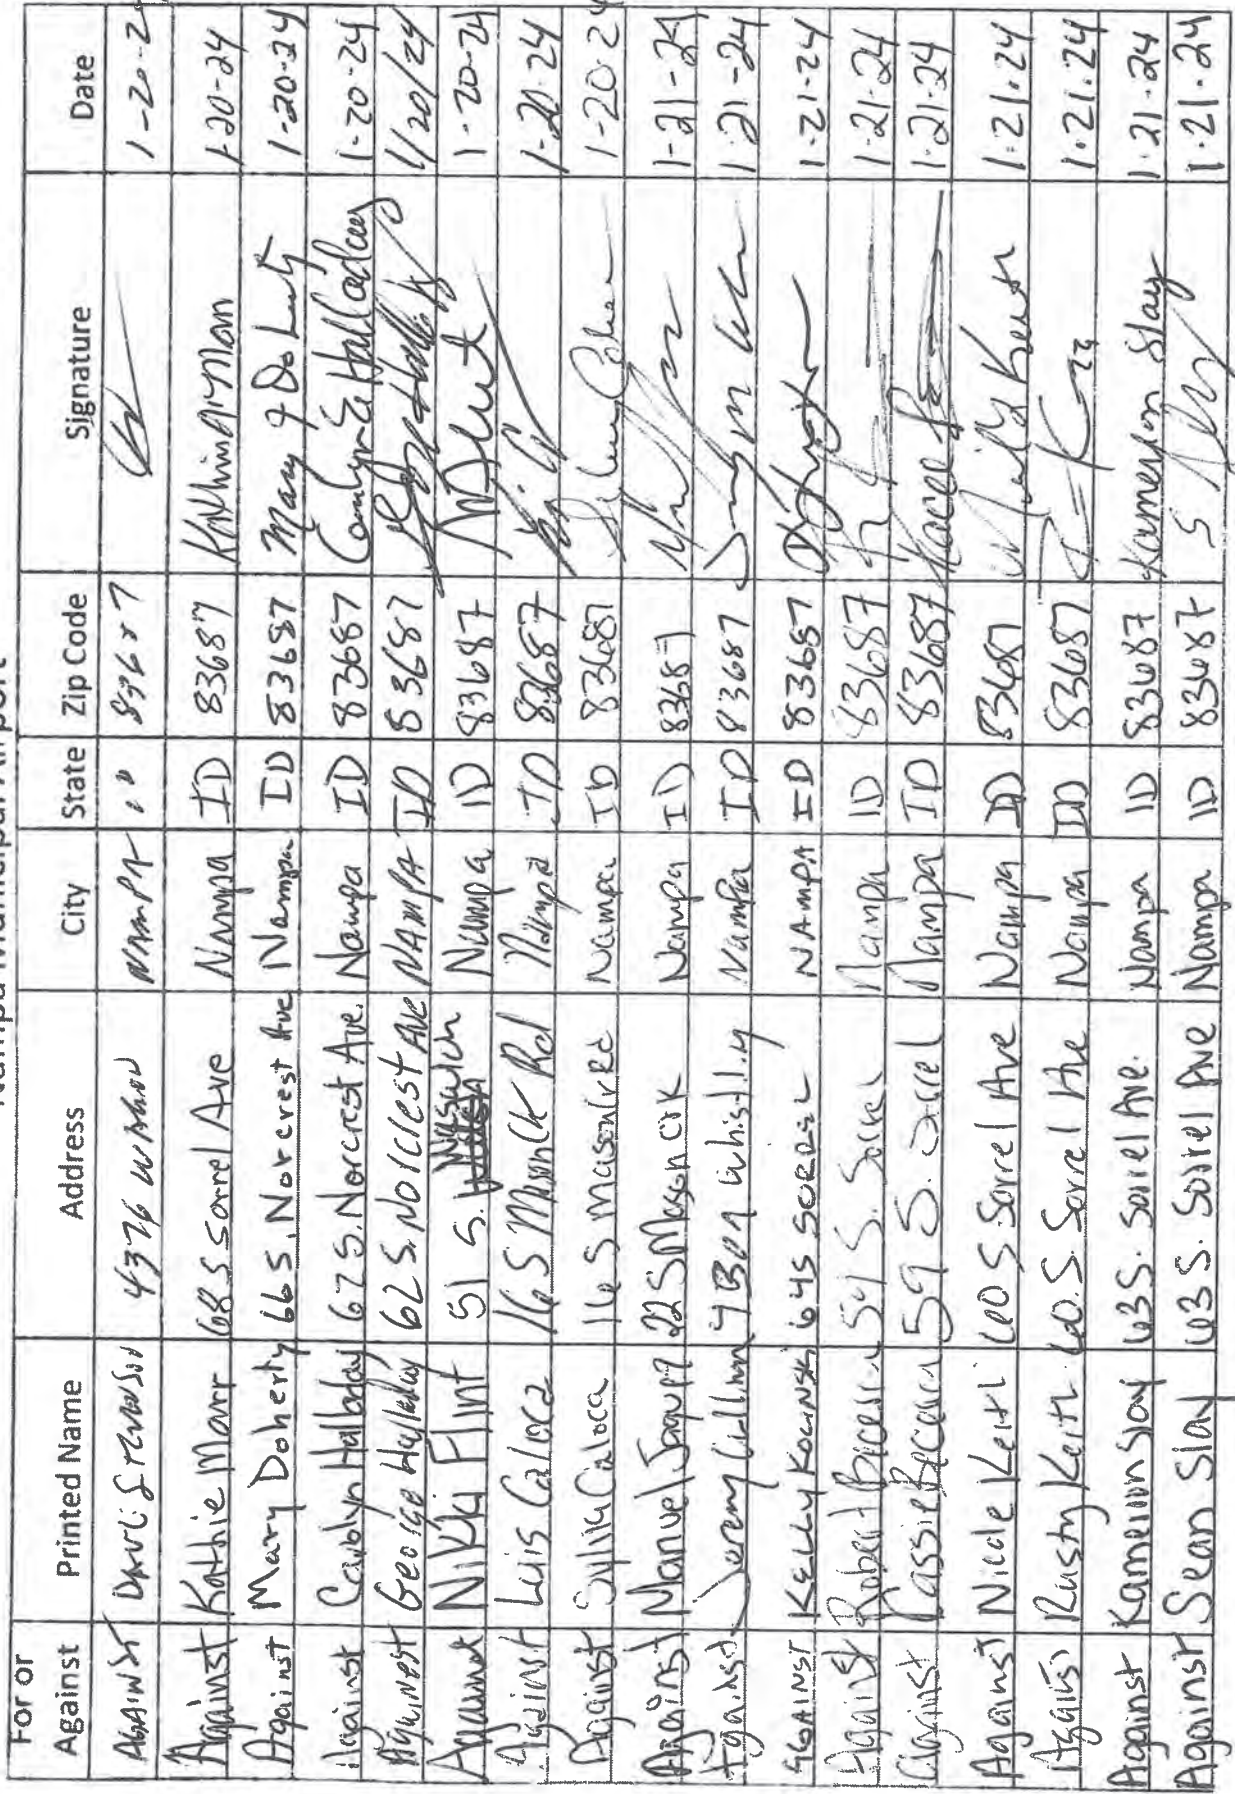 Nampa Municipal Airport
For or Against Printed Name Address City State Zip Code Signature Date
AGAINST 4376 NAMPA ID 1-20-2
Against Kathie Marr 68 S Sorrel Ave Nampa ID 83687 1-20-24
Against Mary Doherty 66 S. Norcrest Ave Nampa ID 83687 Mary J Doherty 1-20-24
Against Carolyn Halladay 67 S. Norcrest Ave. Nampa ID 83687 Carolyn E Halladay 1-20-24
Against George Halladay 62 S. Norcrest Ave NAMPA ID 83687 1/20/24
Against Nikki Flint 51 S. Nampa ID 83687 1-20-24
Against Luis Caloca 16 S Mason Ck Rd Nampa ID 83687 1-20-24
Against Sylvia Caloca 16 S mason Nampa ID 83687 1-20-24
Against Manuel 22 S Mason Nampa ID 8368 1-21-24
Against Jeremy Nampa ID 83687 1-21-24
AGAINST KELLY KOCINSKI 64 S SORREL NAMPA ID 83687 1-21-24
Against Robert 59 S. Nampa ID 83687 1-21-24
Against Kassie 59 S. Sorrel Nampa ID 83687 1-21-24
Against Nicole Keith 60 S. Sorrel Ave Nampa ID 83687 1.21.24
Against Rusty Keith 60. S. Sorrel Ave Nampa ID 83687 1.21.24
Against Kameron Slay 63 S. Sorrel Ave. Nampa ID 83687 Kameron Slay 1.21.24
Against Sean Slay 63 S. Sorrel Ave Nampa ID 83687 S Slay 1.21.24